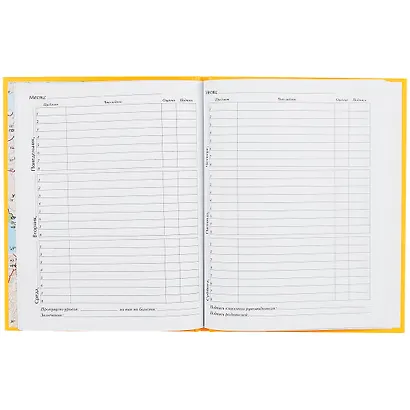 Месяц
Предмет Что задано Оценка Подпись
1
2
3
4
5
6
7
8
Понедельник
1
2
3
4
5
6
7
8
Вторник
1
2
3
4
5
6
7
8
Среда
Пропущено уроков из них по болезни
Замечания:
Месяц
Предмет Что задано Оценка Подпись
1
2
3
4
5
6
7
8
Четверг
1
2
3
4
5
6
7
8
Пятница
1
2
3
4
5
6
7
8
Суббота
Подпись классного руководителя
Подпись родителей